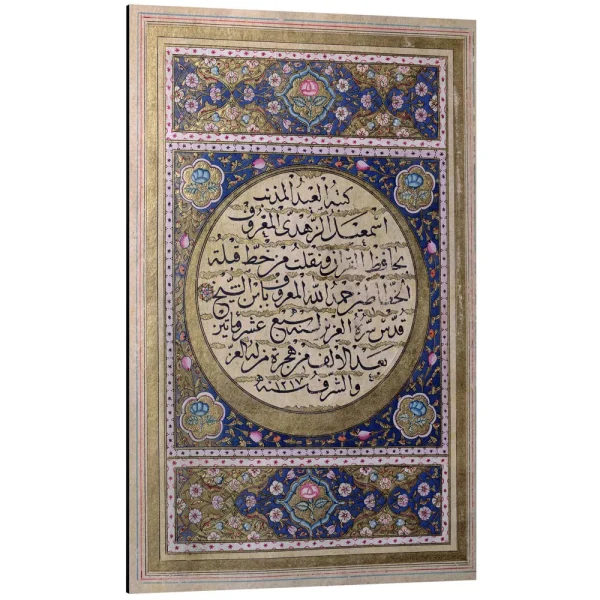 كتبه العبد المذنب
اسمعيل الزهدي المعروف
بحافظ القرآن ونقلت من خط قبلة
الخطاطين حمد الله المعروف بابن الشيخ
قدس سره العزيز لسنة سبع عشر وماتين
بعد الالف من هجرة من له العز
والشرف سنة ١٢١٧